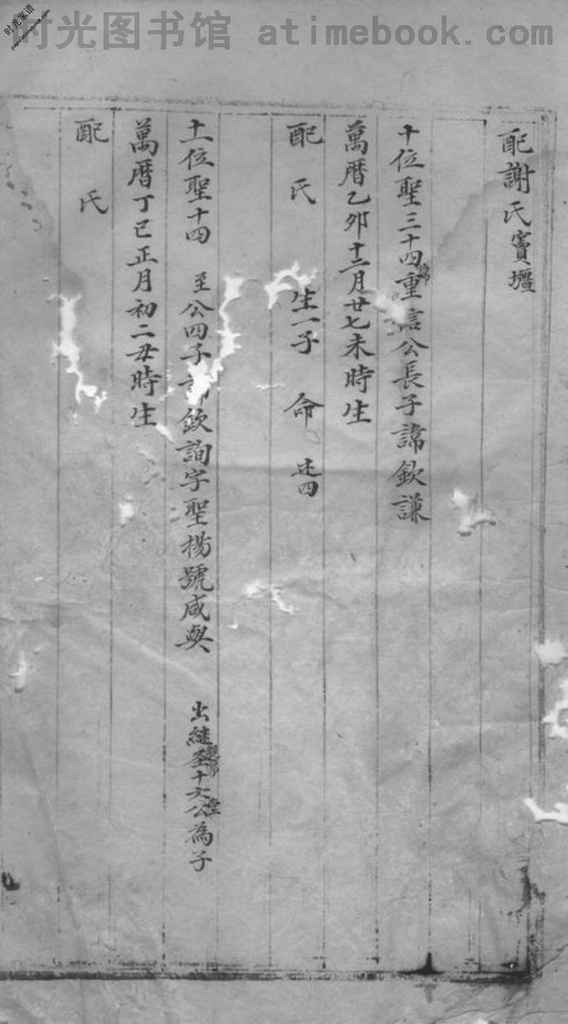 时光图书馆 atimebook.com
时光家谱
配謝氏寶壜
十位聖三十四重言公長子諱欽謙
萬曆乙卯十二月廿七未時生
配氏 生一子 命
十一位聖十四 至公四子 欽詢字聖楊號咸與
出繼 十六公為子
萬曆丁巳正月初二丑時生
配氏